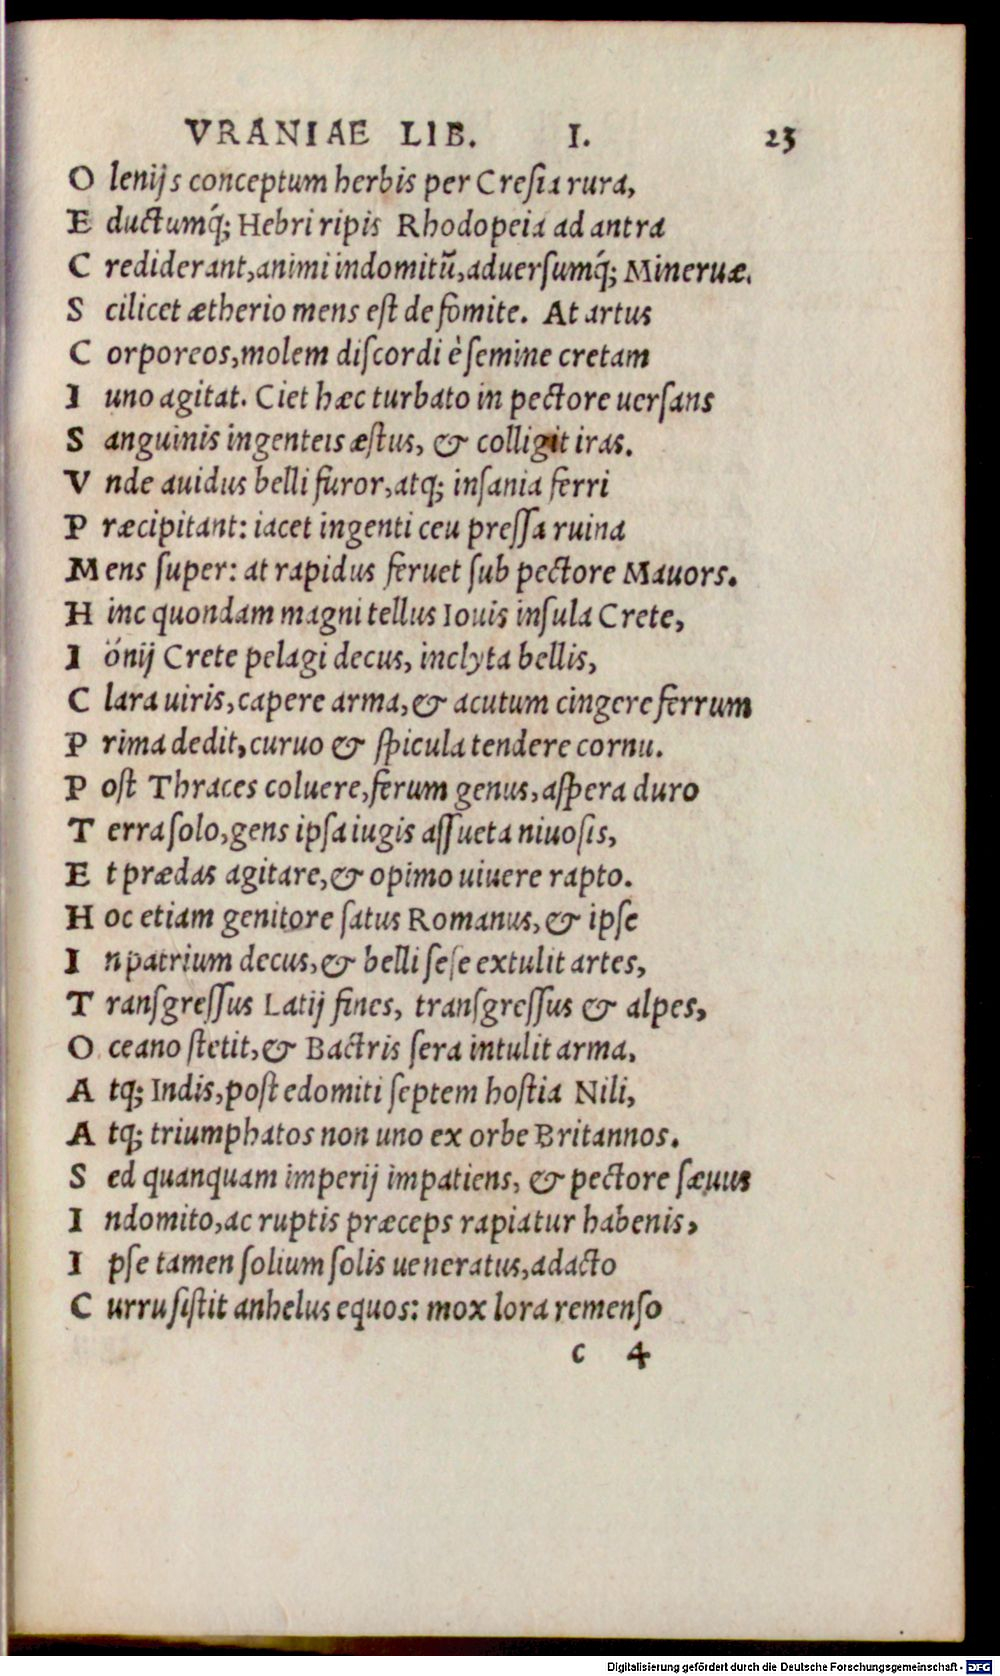 VRANIAE LIB. I. 23
O lenijs conceptum herbis per Cresia rura,
E ductumq́; Hebri ripis Rhodopeia ad antra
C rediderant, animi indomitũ, aduersumq́; Mineruæ.
S cilicet ætherio mens est de fomite. At artus
C orporeos, molem discordi è semine cretam
I uno agitat. Ciet hæc turbato in pectore uersans
S anguinis ingenteis æstus, & colligit iras.
V nde auidus belli furor, atq; insania ferri
P ræcipitant: iacet ingenti ceu pressa ruina
M ens super: at rapidus feruet sub pectore Mauors.
H inc quondam magni tellus Iouis insula Crete,
I önij Crete pelagi decus, inclyta bellis,
C lara uiris, capere arma, & acutum cingere ferrum
P rima dedit, curuo & spicula tendere cornu.
P ost Thraces coluere, ferum genus, aspera duro
T erra solo, gens ipsa iugis assueta niuosis,
E t prædas agitare, & opimo uiuere rapto.
H oc etiam genitore satus Romanus, & ipse
I n patrium decus, & belli sese extulit artes,
T ransgressus Latij fines, transgressus & alpes,
O ceano stetit, & Bactris sera intulit arma,
A tq; Indis, post edomiti septem hostia Nili,
A tq; triumphatos non uno ex orbe Britannos.
S ed quanquam imperij impatiens, & pectore sæuus
I ndomito, ac ruptis præceps rapiatur habenis,
I pse tamen solium solis ueneratus, adacto
C urru sistit anhelus equos: mox lora remenso
c 4
Digitalisierung gefördert durch die Deutsche Forschungsgemeinschaft - DFG